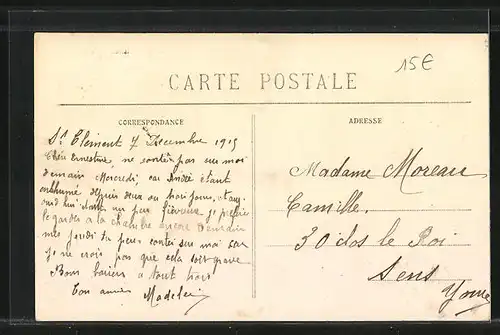 15€
CARTE POSTALE
CORRESPONDANCE
ADRESSE
St Clément 7 Décembre 1915
Chère Ernestine, ne compte pas sur moi
demain Mercredi, car André étant
enrhumé depuis deux ou trois jours, et auj-
ourd'hui étant un peu fiévreux, je préfère
le garder à la chambre encore demain
mais jeudi tu peux compter sur moi car
je ne crois pas que cela soit grave
Bons baisers à tout trois
Ton amie Madelei
Madame Moreau
Camille.
30 clos le Roi
Sens
Yonne